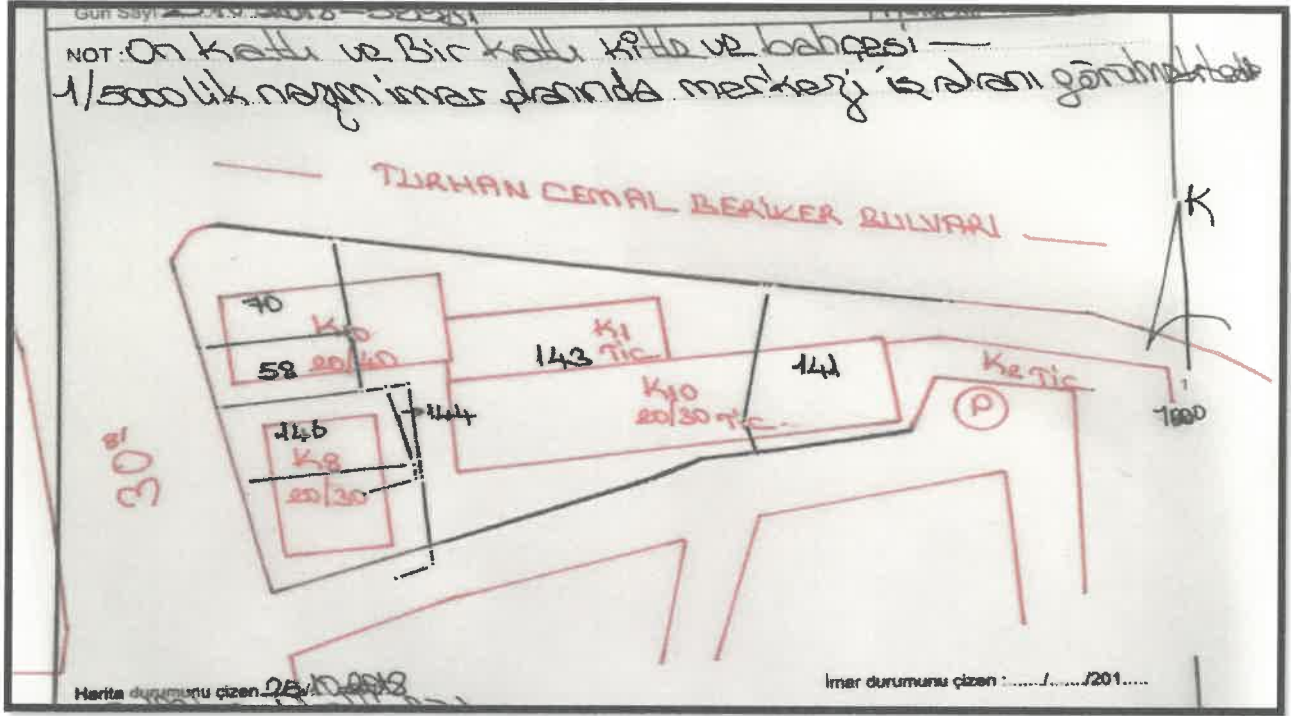 Gün Sayı
NOT: On Katlı ve Bir katlı kitle ve bahçesi —
1/5000 lik nazım imar planında merkezi iş alanı görülmektedir
TURHAN CEMAL BERİKER BULVARI
K
70
K10
20/40
58
K1
TİC
143
141
K10
20/30 TİC.
K2 TİC
P
1000
144
146
K8
20/30
30
Harita durumunu çizen 25/10/2018
İmar durumunu çizen : ...../....../201.....